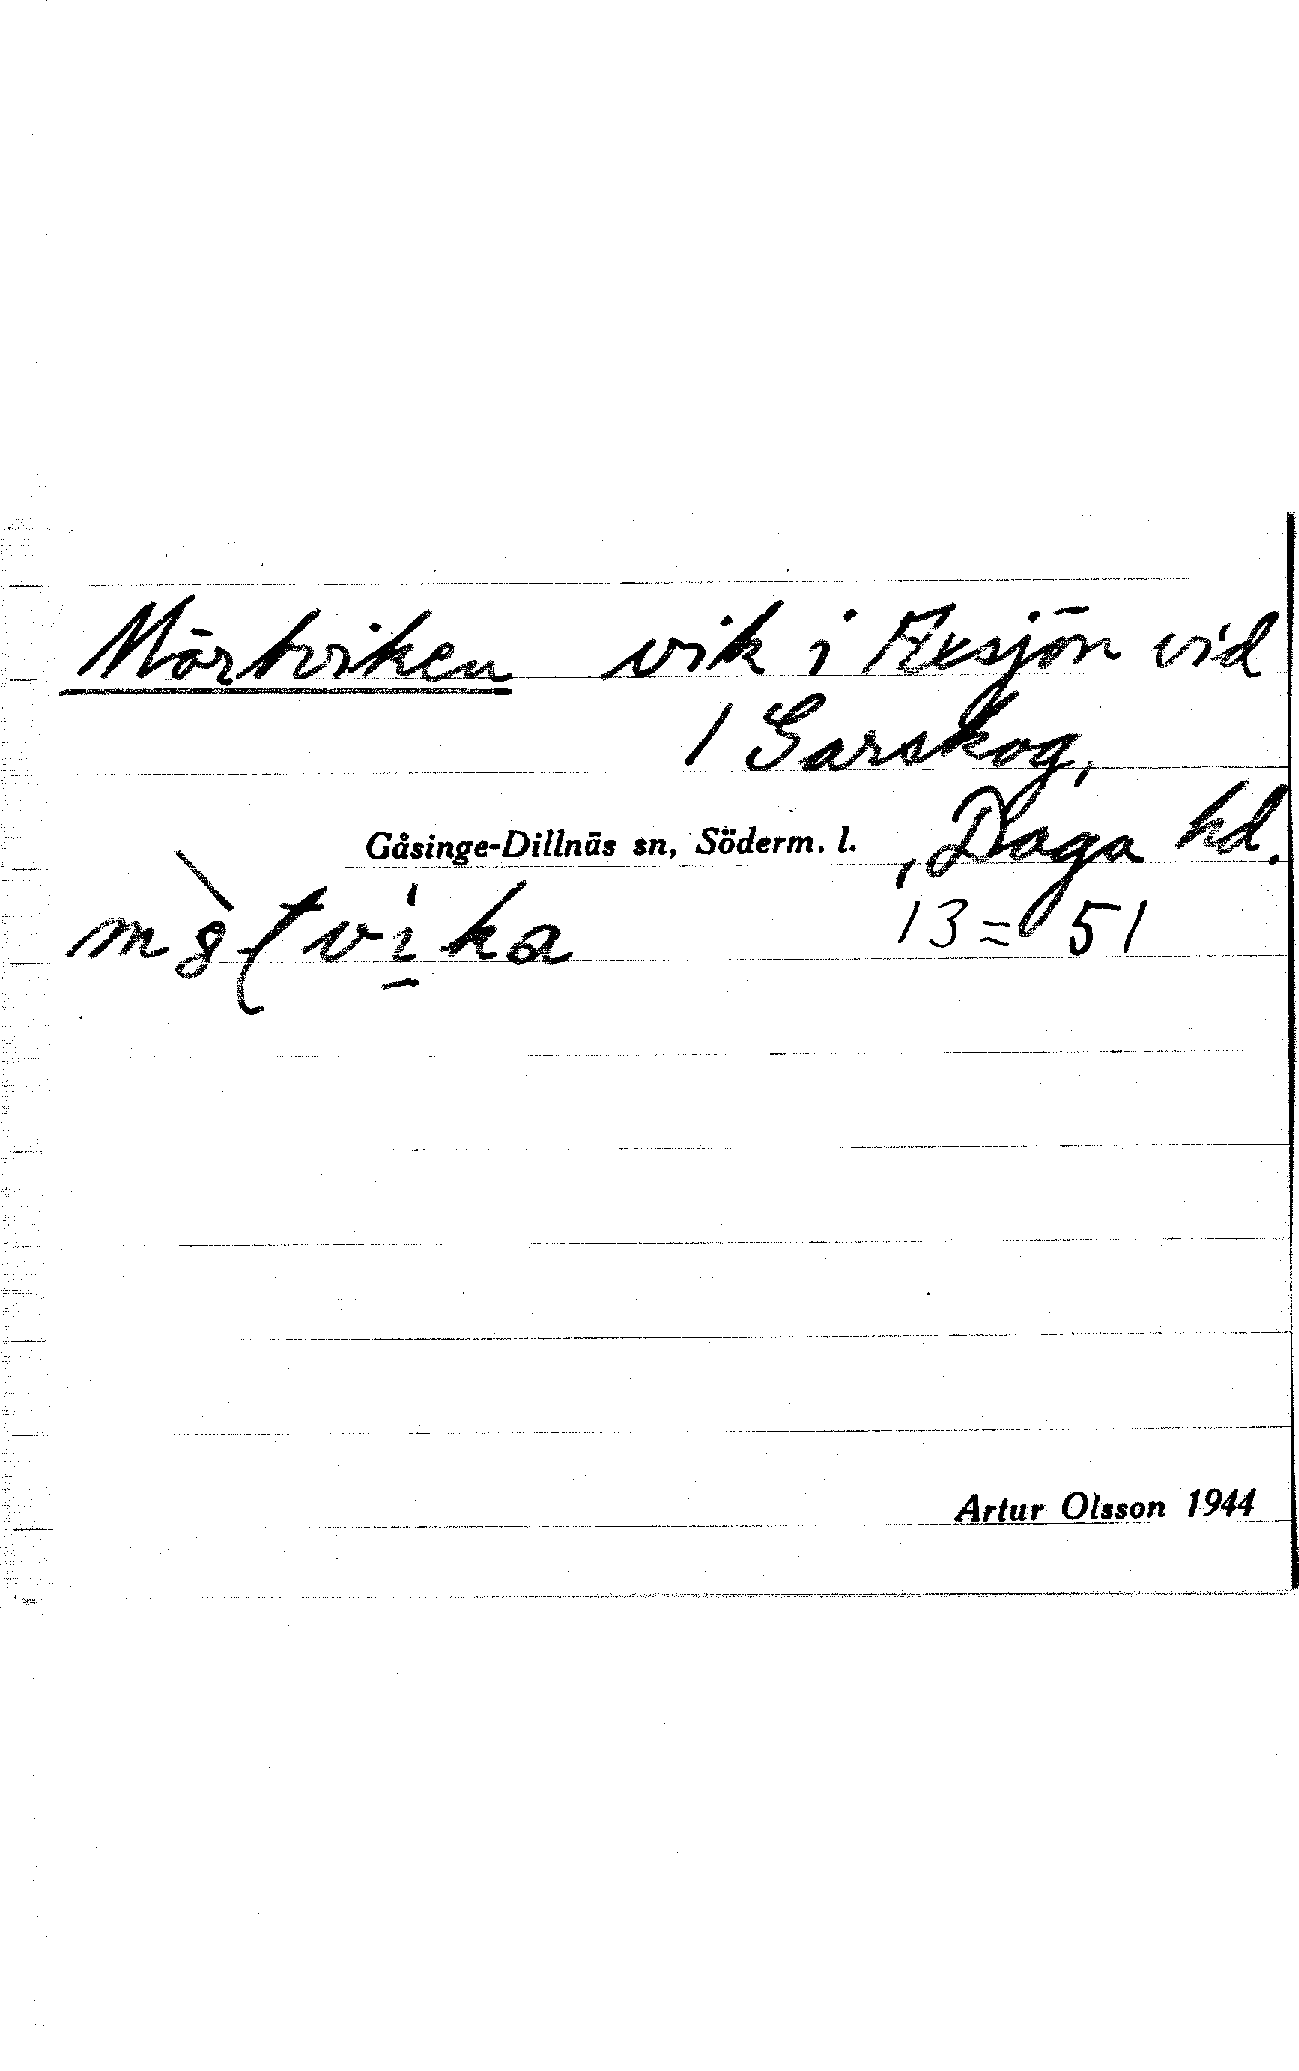 Mörtviken vik i Axsjön vid
1 Garskog,
Gåsinge-Dillnäs sn, Söderm. l. , Daga hd.
13 = 51
Artur Olsson 1944